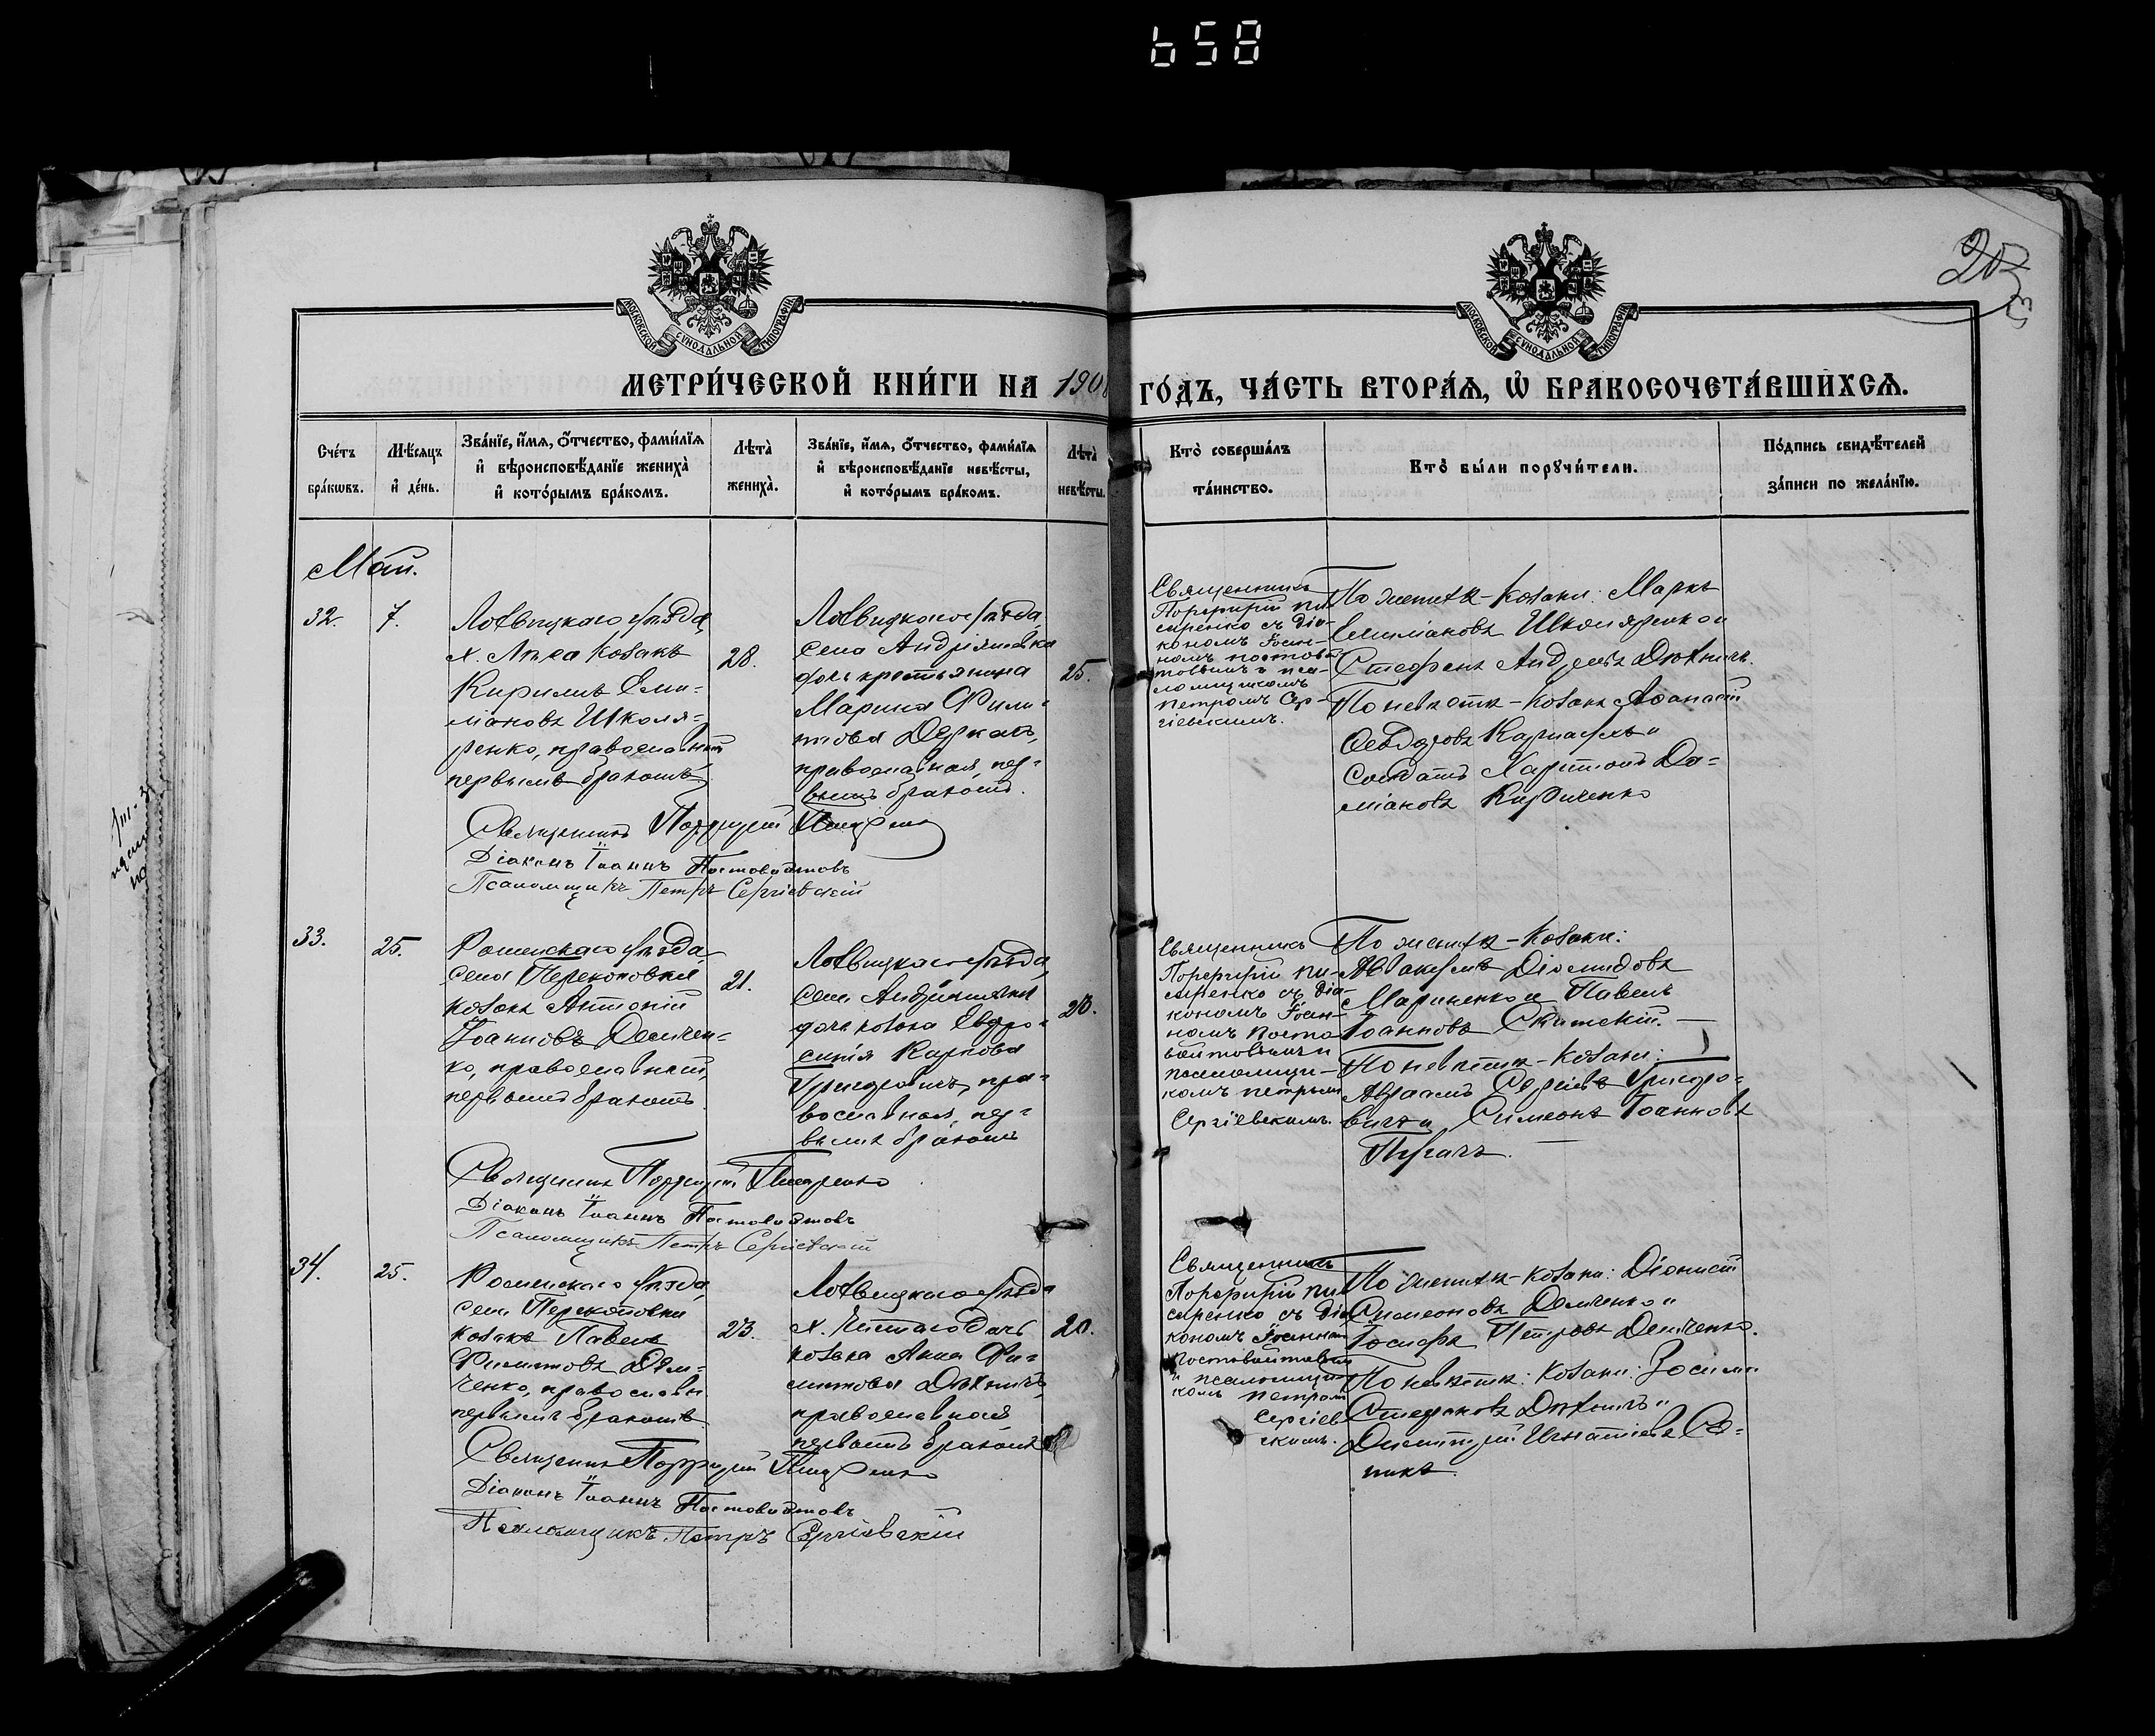 658
МОСКОВСКОЙ СУНОДАЛЬНОЙ ТИПОГРАФІИ
МОСКОВСКОЙ СУНОДАЛЬНОЙ ТИПОГРАФІИ
20
МЕТРИ́ЧЕСКОЙ КНИ́ГИ НА 190
ГО́ДЪ, ЧА́СТЬ ВТОРА́Я, Ѡ҆ БРАКОСОЧЕТА́ВШИХСЯ.
Сче́тъ бра́кѡвъ.
Мѣ́сяцъ и҆ де́нь.
Зва́нїе, и҆́мя, ѻ҆́тчество, фами́лїя
и҆ вѣроисповѣ́данїе жениха̀
и҆ кото́рымъ бра́комъ.
Лѣта̀ жениха̀.
Зва́нїе, и҆́мя, ѻ҆́тчество, фами́лїя
и҆ вѣроисповѣ́данїе невѣ́сты,
и҆ кото́рымъ бра́комъ.
Лѣта̀ невѣ́сты.
Кто̀ соверша́лъ
та́инство.
Кто̀ бы́ли порꙋчи́тели.
По́дпись свидѣ́телей
за́писи по жела́нїю.
Май.
32.
7.
Лохвицкаго уѣзда,
х. Лука козакъ
Кирилъ Еми-
ліановъ Школя-
ренко, православный
первымъ бракомъ
28.
Лохвицкаго уѣзда,
села Андріяшовка
дочь крестьянина
Марина Фили-
пова Деркачъ,
православная, пер-
вымъ бракомъ.
25.
Священникъ
Порфирій Пи-
саренко съ діа-
кономъ Іоан-
номъ Постовой-
товымъ и пса-
ломщикомъ
Петромъ Сер-
гіевскимъ.
По женихѣ - козаки: Маркъ
Емиліановъ Школяренко и
Стефанъ Андреевъ Дохничъ.
По невѣстѣ - козакъ Аѳанасій
Ѳеодоровъ Кармазухъ и
солдатъ Харитонъ Да-
міановъ Кириченко
Священникъ Порфирій Писаренко
Діаконъ Іоаннъ Постовойтовъ
Псаломщикъ Петръ Сергіевскій
33.
25.
Роменскаго уѣзда
села Перекоповки
козакъ Антоній
Іоанновъ Демчен-
ко, православный,
первымъ бракомъ
21.
Лохвицкаго уѣзда,
села Андріяшовки
дочь козака Евфро-
синія Карпова
Григоровичъ, пра-
вославная, пер-
вымъ бракомъ
20.
Священникъ
Порфирій Пи-
саренко съ діа-
кономъ Іоан-
номъ Посто-
войтовымъ и
псаломщи-
комъ Петромъ
Сергіевскимъ.
По женихѣ - козаки:
Аввакумъ Діомидовъ
Мариненко и Павелъ
Іоанновъ Скитскій.
По невѣстѣ - козаки:
Авраамъ Сергіевъ Григоро-
вичъ и Симеонъ Іоанновъ
Пугачъ.
Священникъ Порфирій Писаренко
Діаконъ Іоаннъ Постовойтовъ
Псаломщикъ Петръ Сергіевскій
34.
25.
Роменскаго уѣзда,
села Перекоповки
козакъ Павелъ
Филиповъ Дем-
ченко, православн
первымъ бракомъ
23.
Лохвицкаго уѣзда
дочь
козака Анна Фи-
липова Дохничъ,
православная
первымъ бракомъ
20.
Священникъ
Порфирій Пи-
саренко съ діа-
кономъ Іоанномъ
Постовойтовымъ
и псаломщи-
комъ Петромъ
Сергіев-
скимъ.
По женихѣ - козаки: Діонисій
Симеоновъ Демченко и
Іосифъ Петровъ Демченко.
По невѣстѣ: козаки: Зосима
Стефановъ Дохничъ и
Димитрій Игнатіевъ
Священникъ Порфирій Писаренко
Діаконъ Іоаннъ Постовойтовъ
Псаломщикъ Петръ Сергіевскій